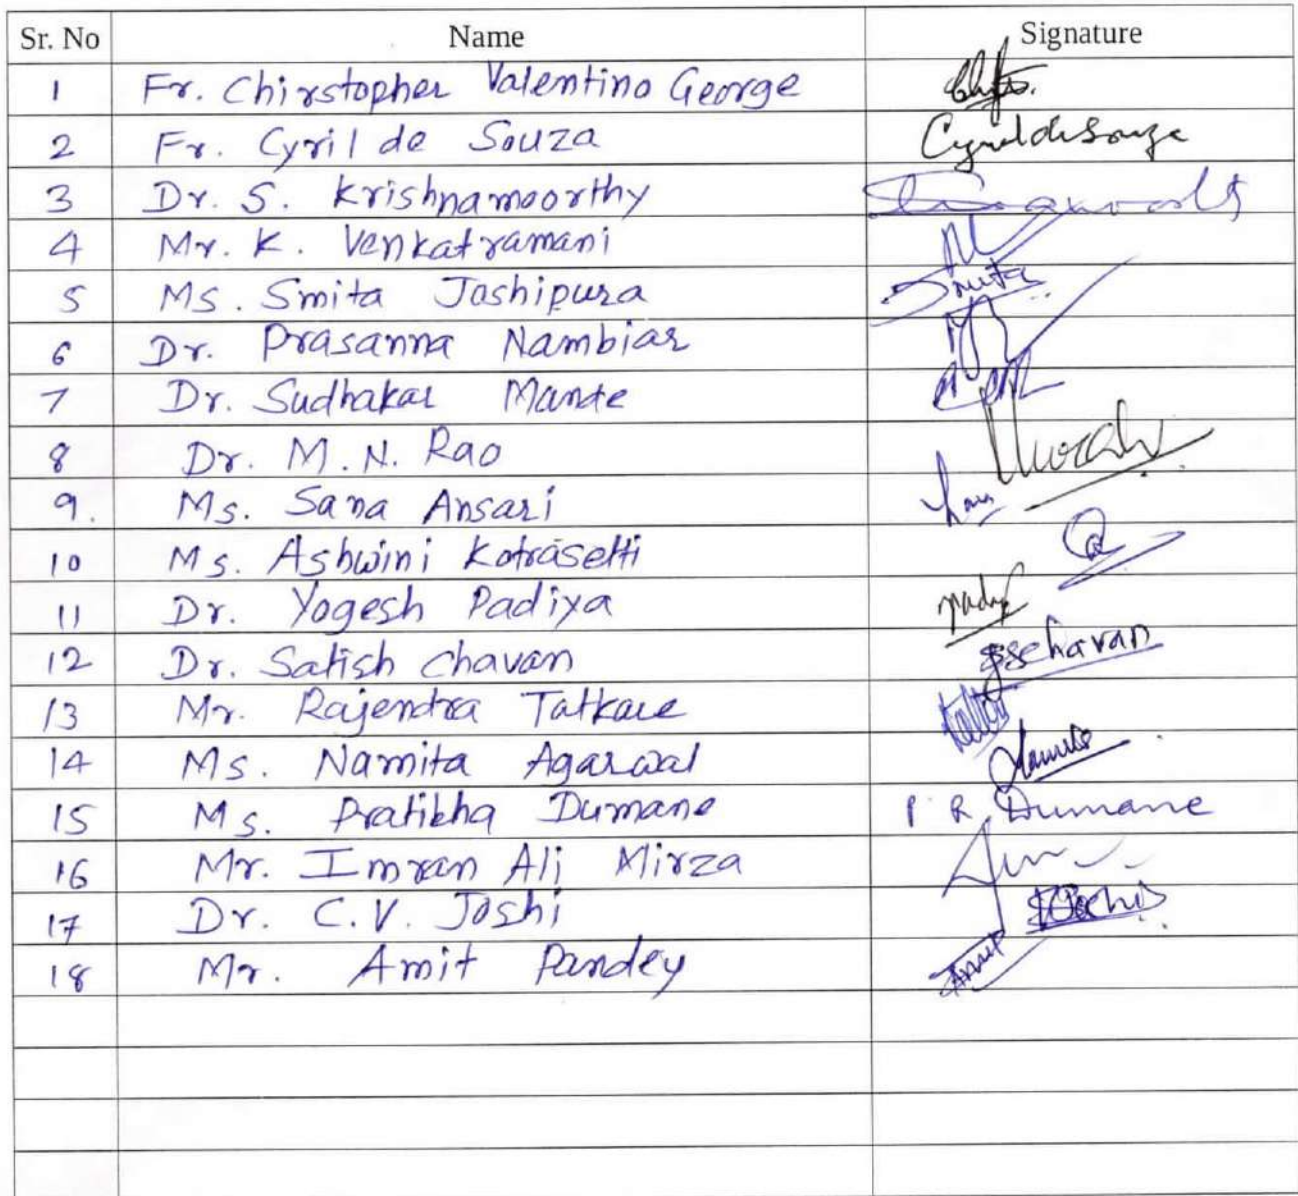 Sr. No Name Signature
1 Fr. Chirstopher Valentino George
2 Fr. Cyril de Souza Cyril de Souza
3 Dr. S. Krishnamoorthy
4 Mr. K. Venkatramani
5 Ms. Smita Joshipura Smita
6 Dr. Prasanna Nambiar
7 Dr. Sudhakar Mande
8 Dr. M.N. Rao
9. Ms. Sana Ansari
10 Ms. Ashwini Kotrasetti
11 Dr. Yogesh Padiya
12 Dr. Satish Chavan sschavan
13 Mr. Rajendra Tatkare
14 Ms. Namita Agarwal
15 Ms. Pratibha Dumane P R Dumane
16 Mr. Imran Ali Mirza
17 Dr. C.V. Joshi
18 Mr. Amit Pandey